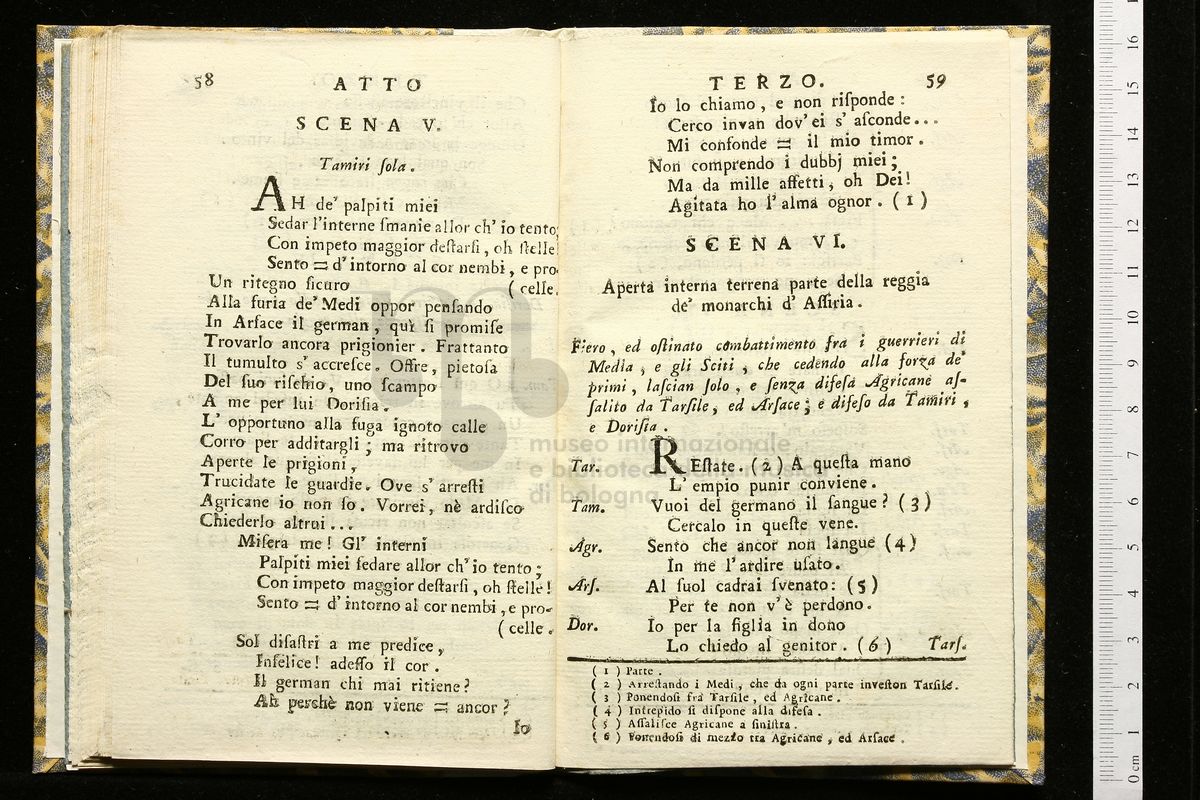 58
ATTO
SCENA V.
Tamiri ſola.
AH de' palpiti miei
Sedar l'interne ſmanie allor ch' io tento,
Con impeto maggior deſtarſi, oh ſtelle
Sento = d' intorno al cor nembi, e pro-
Un ritegno ſicuro ( celle.
Alla furia de' Medi oppor penſando
In Arſace il german, quì ſi promiſe
Trovarlo ancora prigionier. Frattanto
Il tumulto s' accreſce. Offre, pietoſa
Del ſuo riſchio, uno ſcampo
A me per lui Doriſia.
L' opportuno alla fuga ignoto calle
Corro per additargli; ma ritrovo
Aperte le prigioni,
Trucidate le guardie. Ove s' arreſti
Agricane io non ſo. Vorrei, nè ardiſco
Chiederlo altrui...
Miſera me! Gl' interni
Palpiti miei ſedare allor ch' io tento;
Con impeto maggior deſtarſi, oh ſtelle!
Sento = d' intorno al cor nembi, e pro-
( celle.
Sol diſaſtri a me predice,
Infelice! adeſſo il cor.
Il german chi mai ritiene?
Ah perchè non viene = ancor?
Io
TERZO.
59
Io lo chiamo, e non riſponde:
Cerco invan dov' ei s' aſconde...
Mi confonde = il mio timor.
Non comprendo i dubbj miei;
Ma da mille affetti, oh Dei!
Agitata ho l' alma ognor. (1)
SCENA VI.
Aperta interna terrena parte della reggia
de' monarchi d' Aſſiria.
Fiero, ed oſtinato combattimento fra i guerrieri di
Media, e gli Sciti, che cedendo alla forza de'
primi, laſcian ſolo, e ſenza difeſa Agricane aſ-
ſalito da Tarſile, ed Arſace; e difeſo da Tamiri,
e Doriſia.
Tar. REſtate. (2) A queſta mano
L' empio punir conviene.
Tam. Vuoi del germano il ſangue? (3)
Cercalo in queſte vene.
Agr. Sento che ancor non langue (4)
In me l'ardire uſato.
Arſ. Al ſuol cadrai ſvenato: (5)
Per te non v'è perdono.
Dor. Io per la figlia in dono
Lo chiedo al genitor. (6) Tarſ.
(1) Parte.
(2) Arreſtando i Medi, che da ogni parte inveſton Tarſile.
(3) Ponendoſi fra Tarſile, ed Agricane.
(4) Intrepido ſi diſpone alla difeſa.
(5) Aſſaliſce Agricane a ſiniſtra.
(6) Ponendoſi di mezzo tra Agricane, ed Arſace.
museo internazionale
e biblioteca della musica
di bologna
0 cm 1 2 3 4 5 6 7 8 9 10 11 12 13 14 15 16